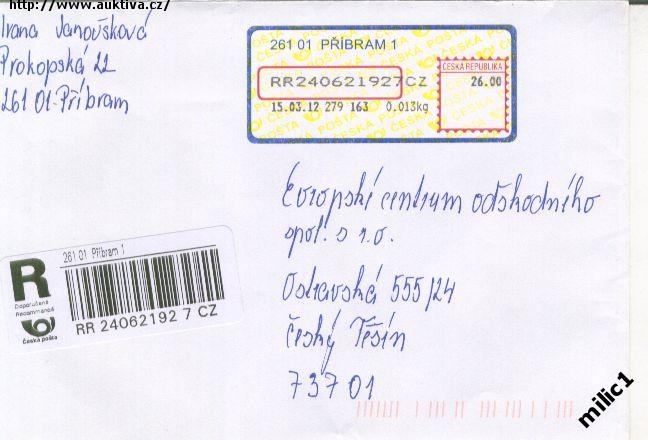 http://www.auktiva.cz/
Ivana Janoušková
Prokopská 22
261 01 - Příbram
261 01 PŘÍBRAM 1
RR240621927CZ
ČESKÁ REPUBLIKA
26.00
15.03.12 279 163 0.013kg
Evropské centrum odškodného
spol. s r.o.
Ostravská 555/24
Český Těšín
737 01
261 01 Příbram 1
R
Doporučeně
Recommandé
Česká pošta
RR 24062192 7 CZ
milic1